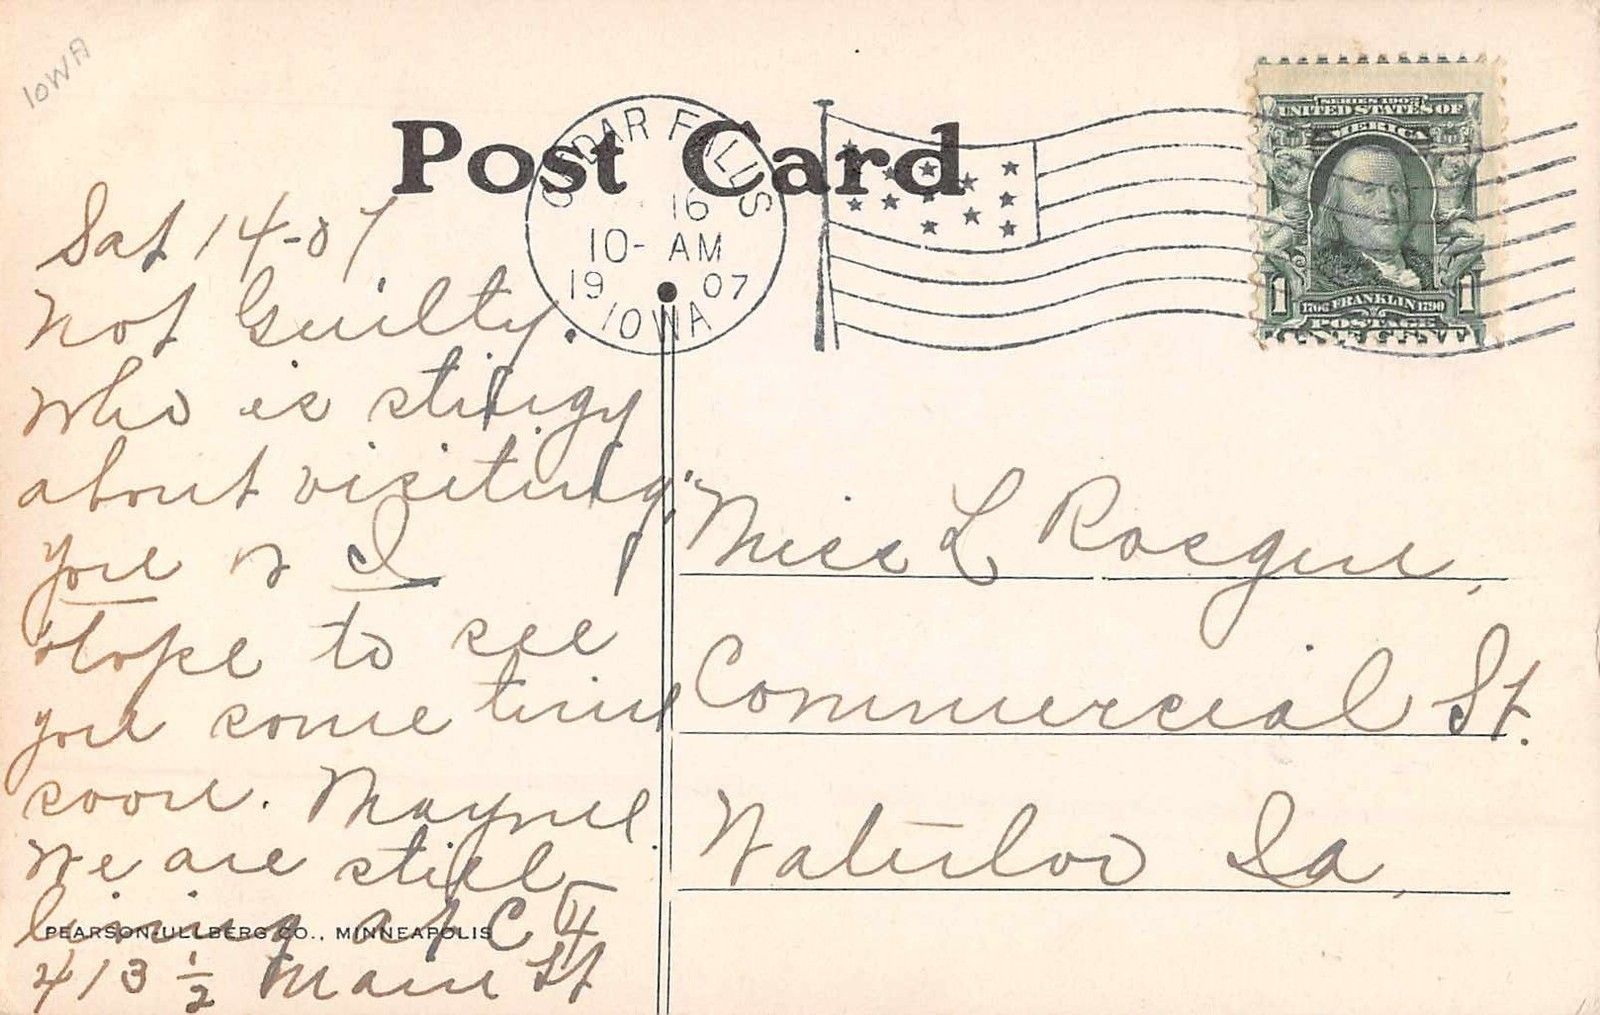 IOWA
Post Card
CEDAR FALLS
16
10- AM
1907
IOWA
SERIES 1902
UNITED STATES OF
AMERICA
1 1
1706 FRANKLIN 1790
POSTAGE
ONE CENT
Sat 14-07
Not Guilty.
Who is stingy
about visiting,
you or I
Hope to see
you some time
soon. Mayme.
We are still
living at C F
413 1/2 Main St
PEARSON-ULLBERG CO., MINNEAPOLIS
Miss L
Commercial St.
Waterloo Ia,